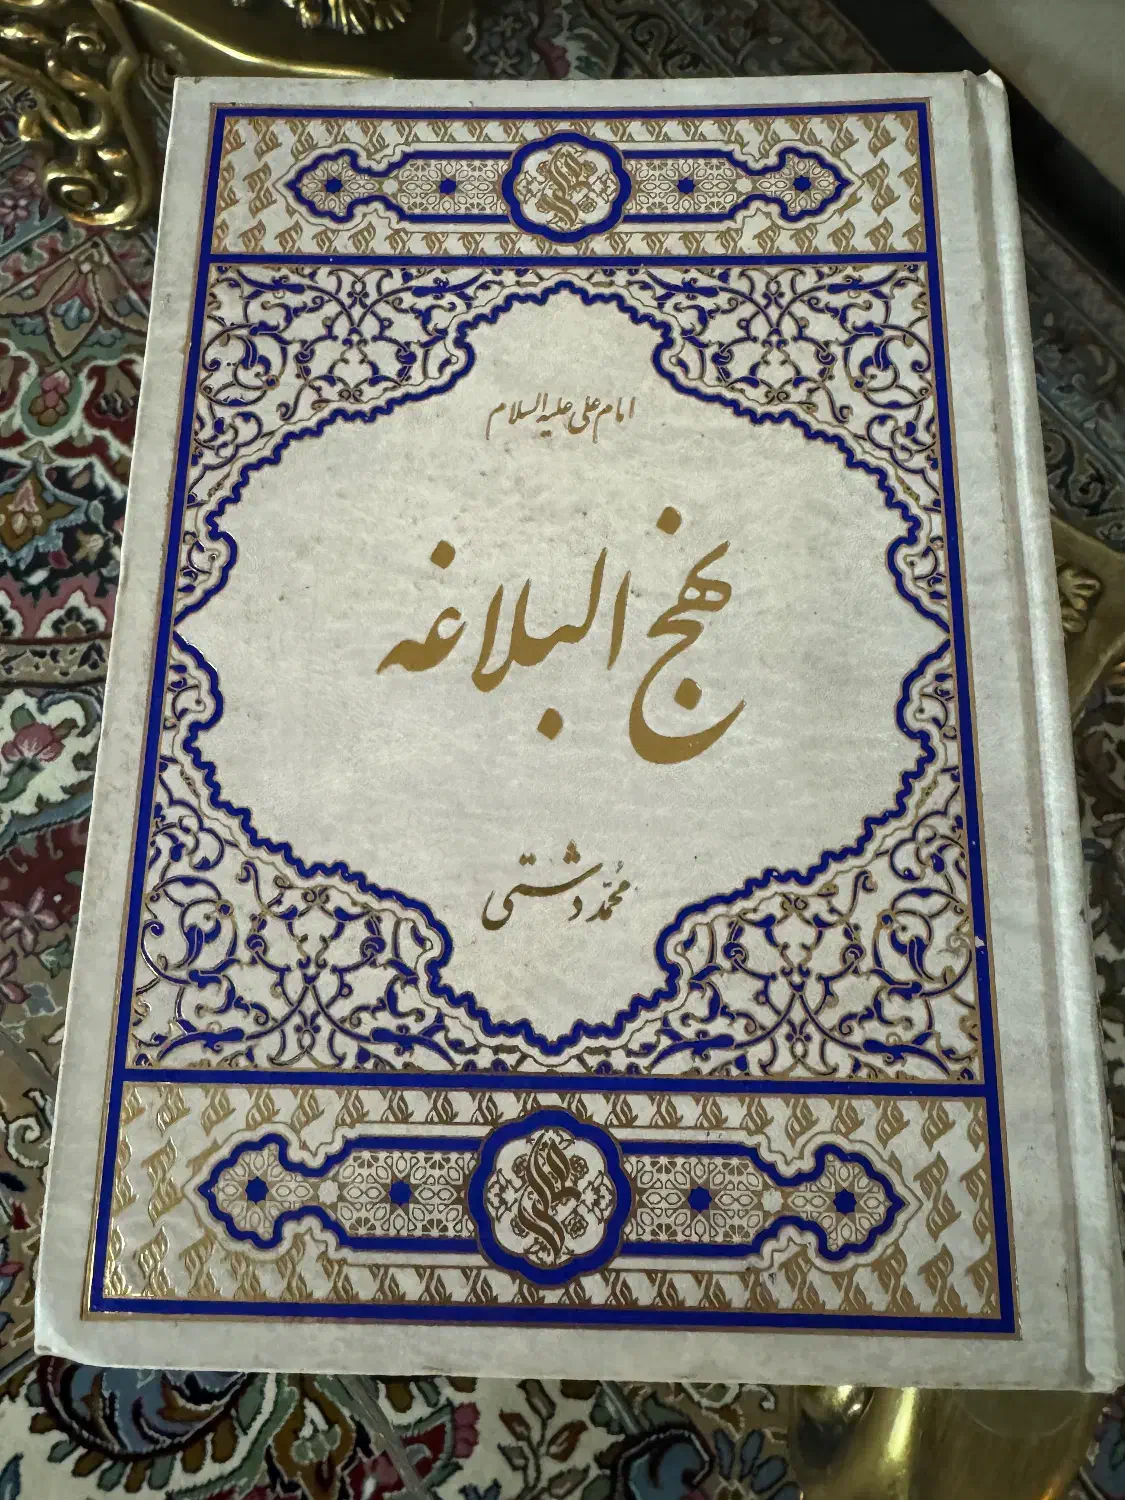 امام علی علیه السلام
نهج البلاغه
محمّد دشتی